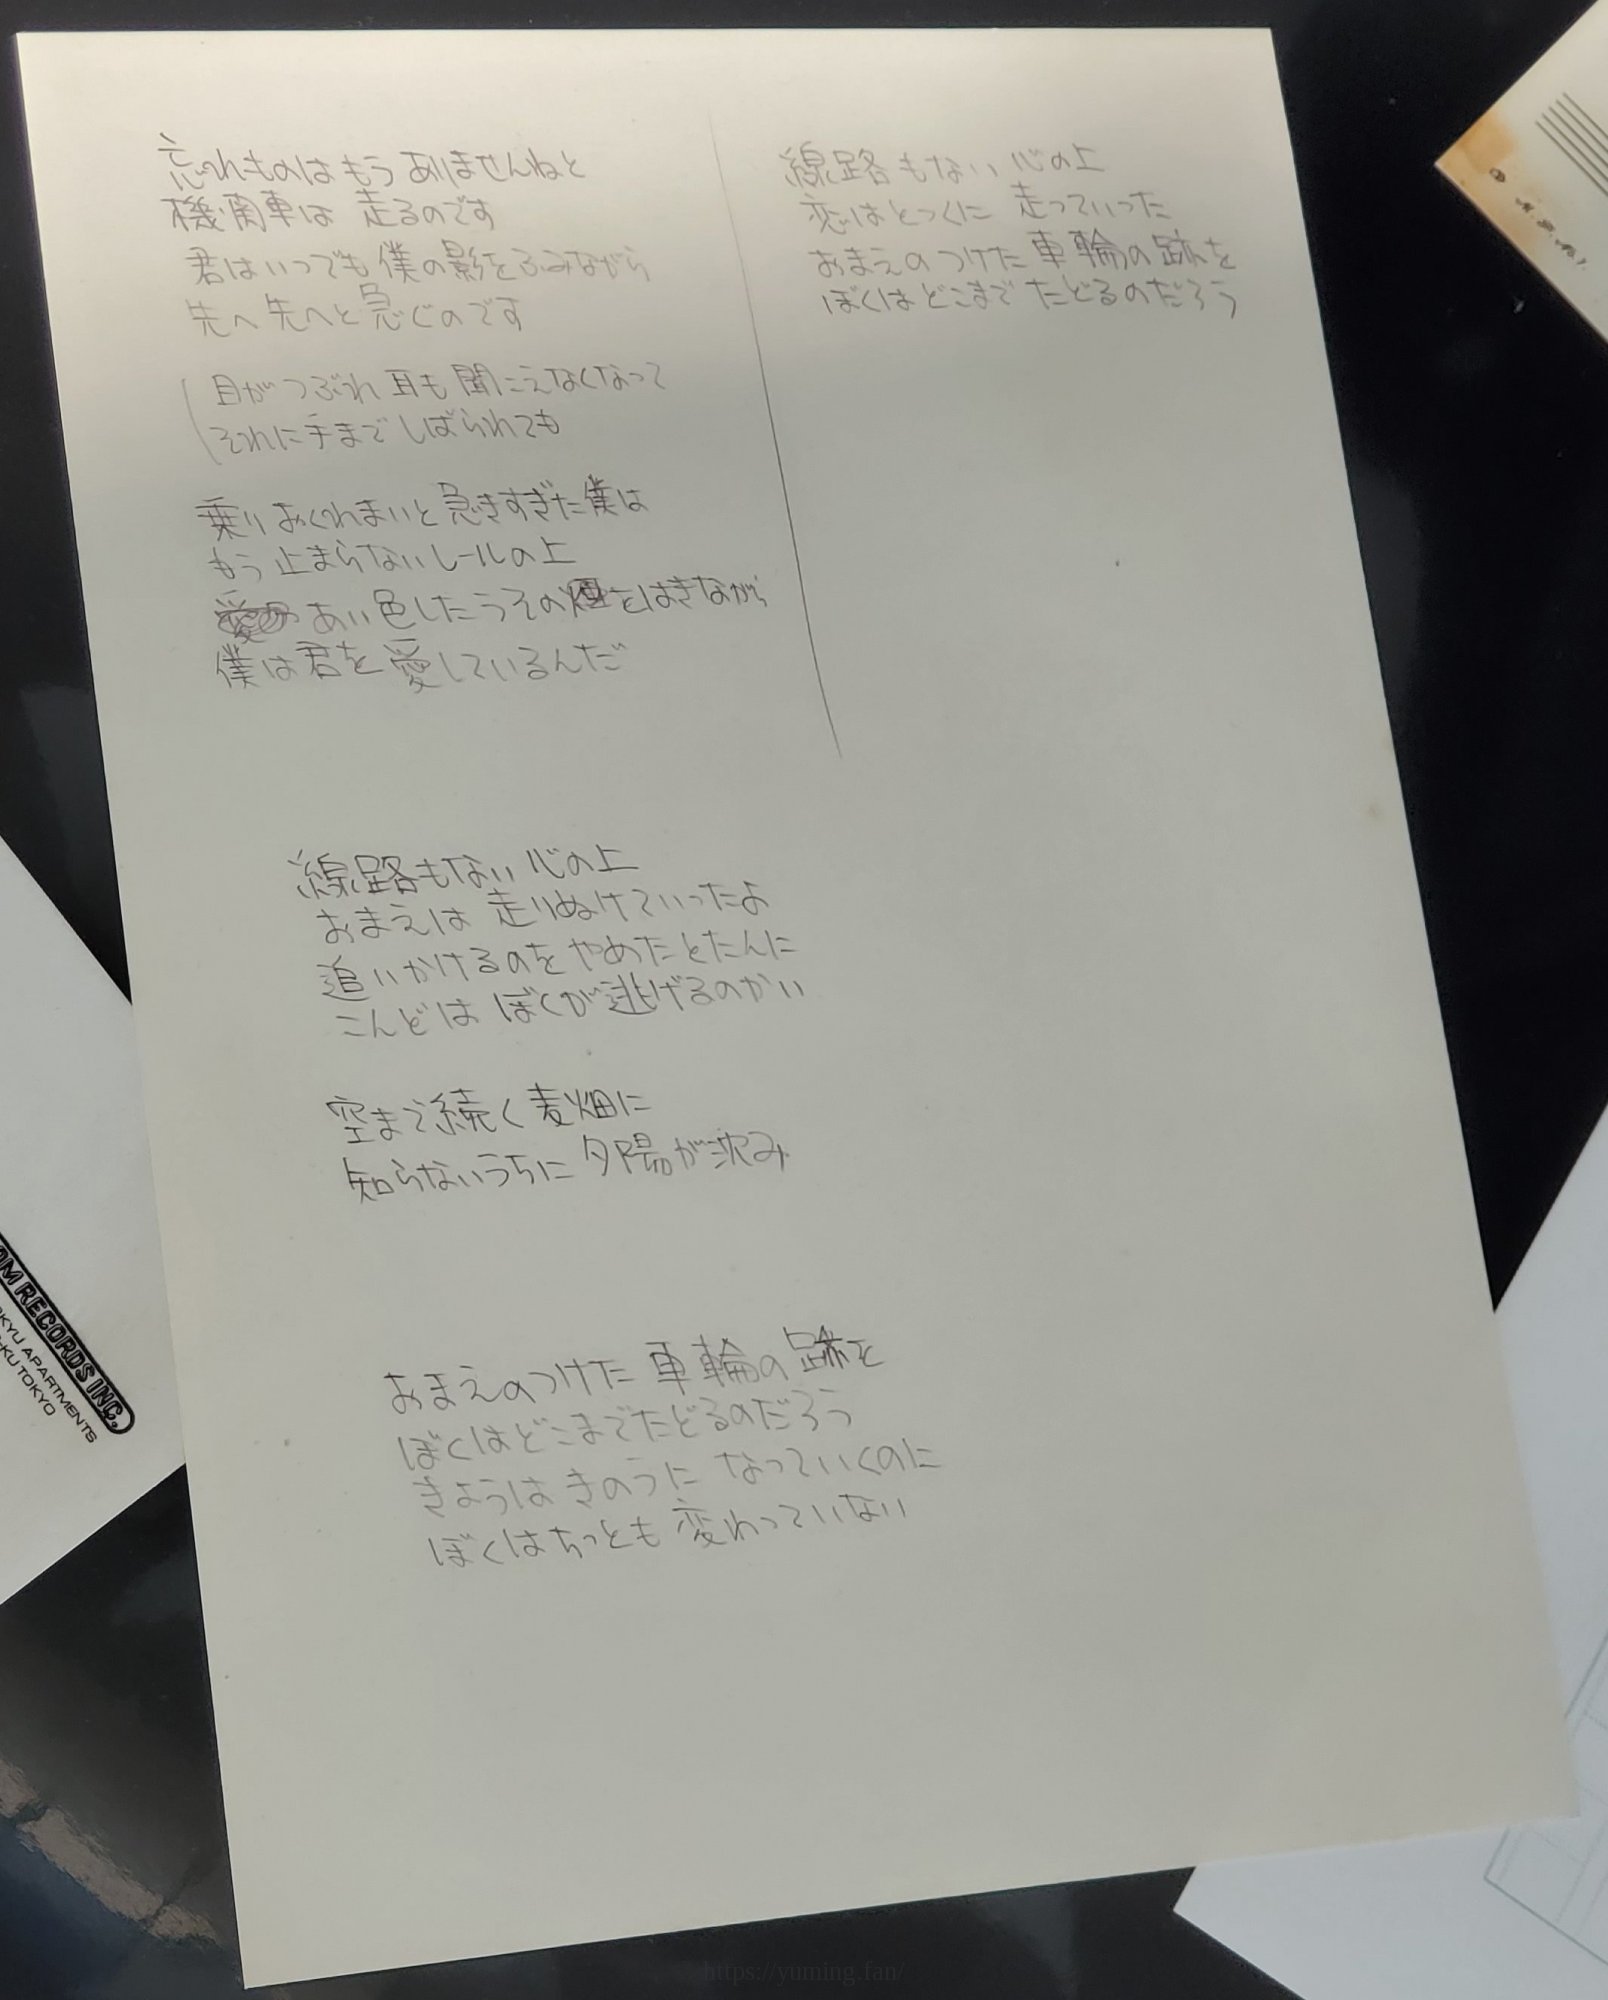 忘れものはもうありませんねと
機関車は 走るのです
君はいつでも僕の影をふみながら
先へ先へと急ぐのです
目がつぶれ 耳も聞こえなくなって
それに手までしばられても
乗りおくれまいと急きすぎた僕は
もう止まらないレールの上
あい色したうその煙をはきながら
僕は君を愛しているんだ
線路もない心の上
恋はとっくに 走っていった
おまえのつけた車輪の跡を
ぼくはどこまでたどるのだろう
線路もない心の上
おまえは 走りぬけていったよ
追いかけるのをやめたとたんに
こんどは ぼくが逃げるのかい
空まで続く麦畑に
知らないうちに夕陽が沈み
おまえのつけた車輪の跡を
ぼくはどこまでたどるのだろう
きょうはきのうに なっていくのに
ぼくはちっとも変わっていない
RECORDS INC.
APARTMENTS
TOKYO
https://yuming.fan/